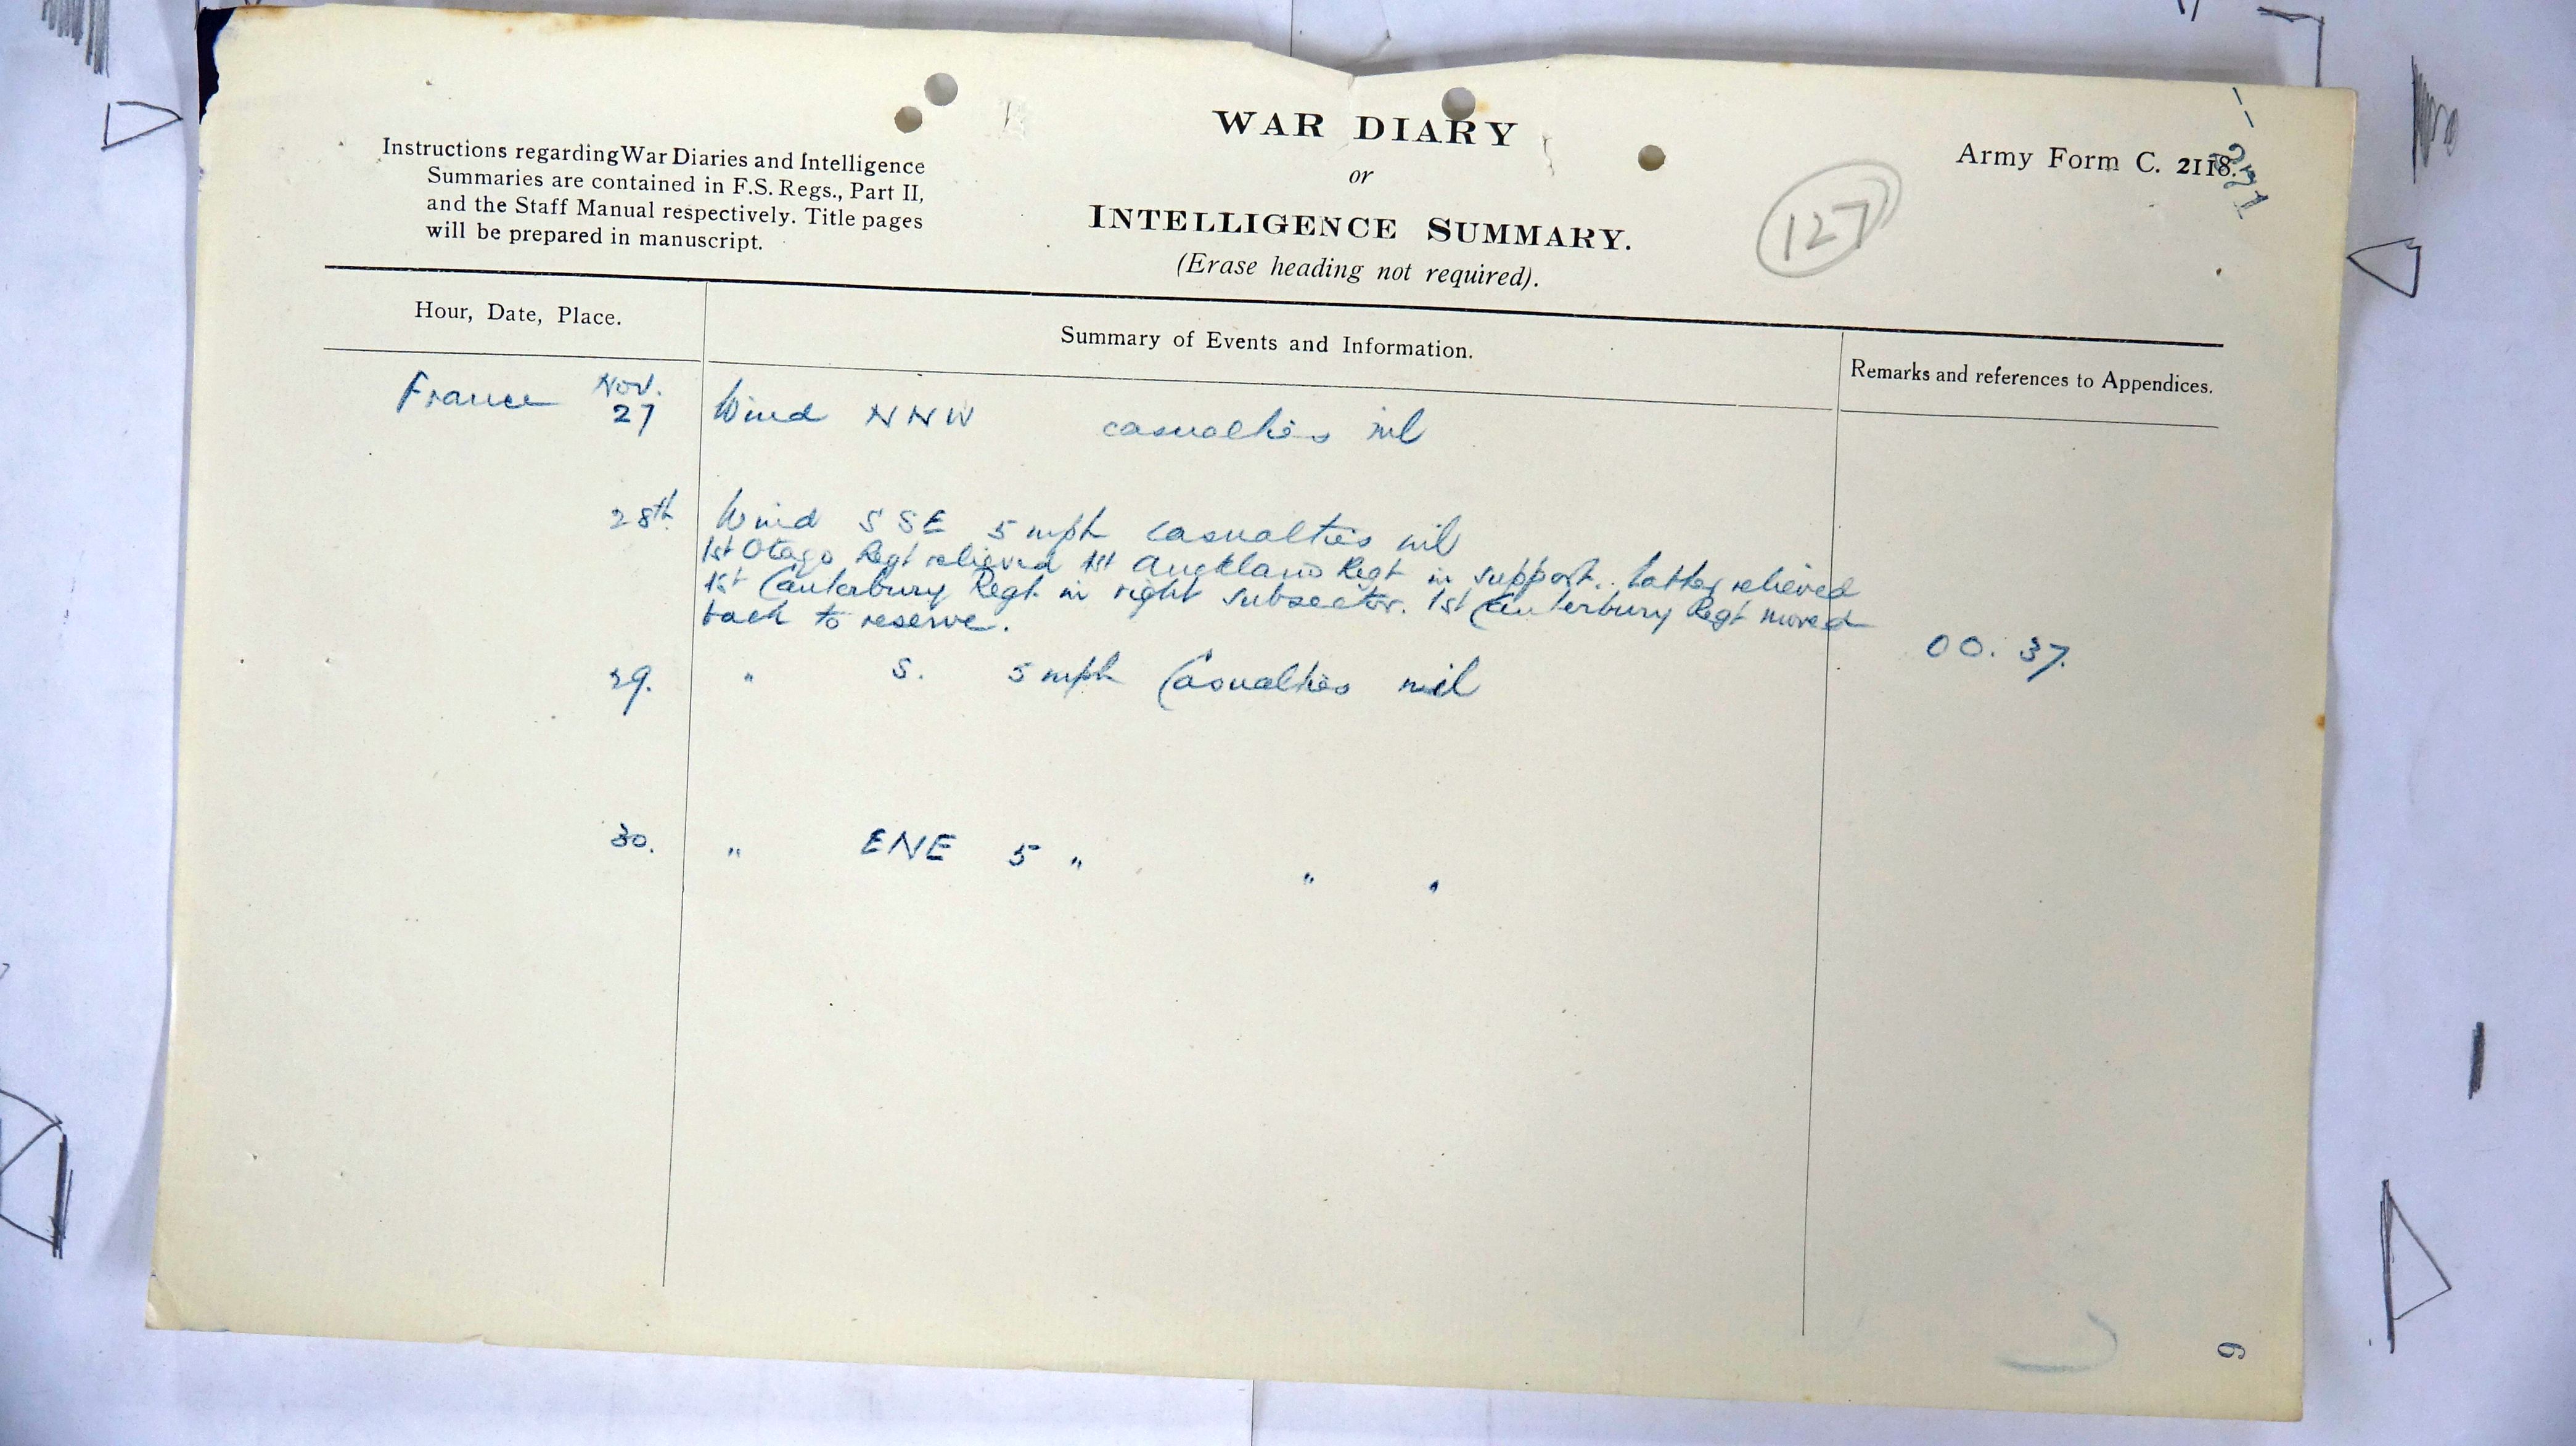 WAR DIARY
or
INTELLIGENCE SUMMARY.
(Erase heading not required).
Instructions regarding War Diaries and Intelligence
Summaries are contained in F.S. Regs., Part II,
and the Staff Manual respectively. Title pages
will be prepared in manuscript.
127
Army Form C. 2118.
Hour, Date, Place.
Summary of Events and Information.
Remarks and references to Appendices.
France Nov. 27 Wind NNW casualties nil
28th Wind SSE 5 mph casualties nil
1st Otago Regt relieved 1st Auckland Regt in support. Latter relieved
1st Canterbury Regt in right subsector. 1st Canterbury Regt moved
back to reserve.
OO. 37.
29. " S. 5 mph Casualties nil
30. " ENE 5 " " "
9